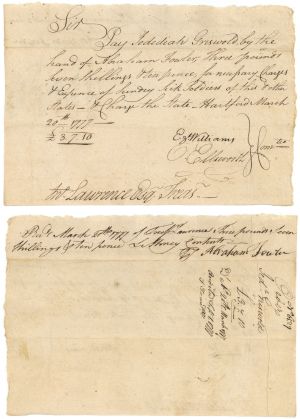 Sir
Pay Jedediah Griswold, by the
hand of Abraham Fowler, three pounds
seven shillings & ten pence, for necessary Charges
& Expence of Sundry sick Soldiers of this & other
States — & Charge the State. Hartford March
20th 1777
£ 3.7.10
Ez Williams
Ellsworth
Comtee
Lawrence Esqr Treasr
Recd March 1777 of Lawrence three pounds seven
shillings & ten pence L Money Contents
Abraham Fowler
Jedh Griswold
£ 3.7.10